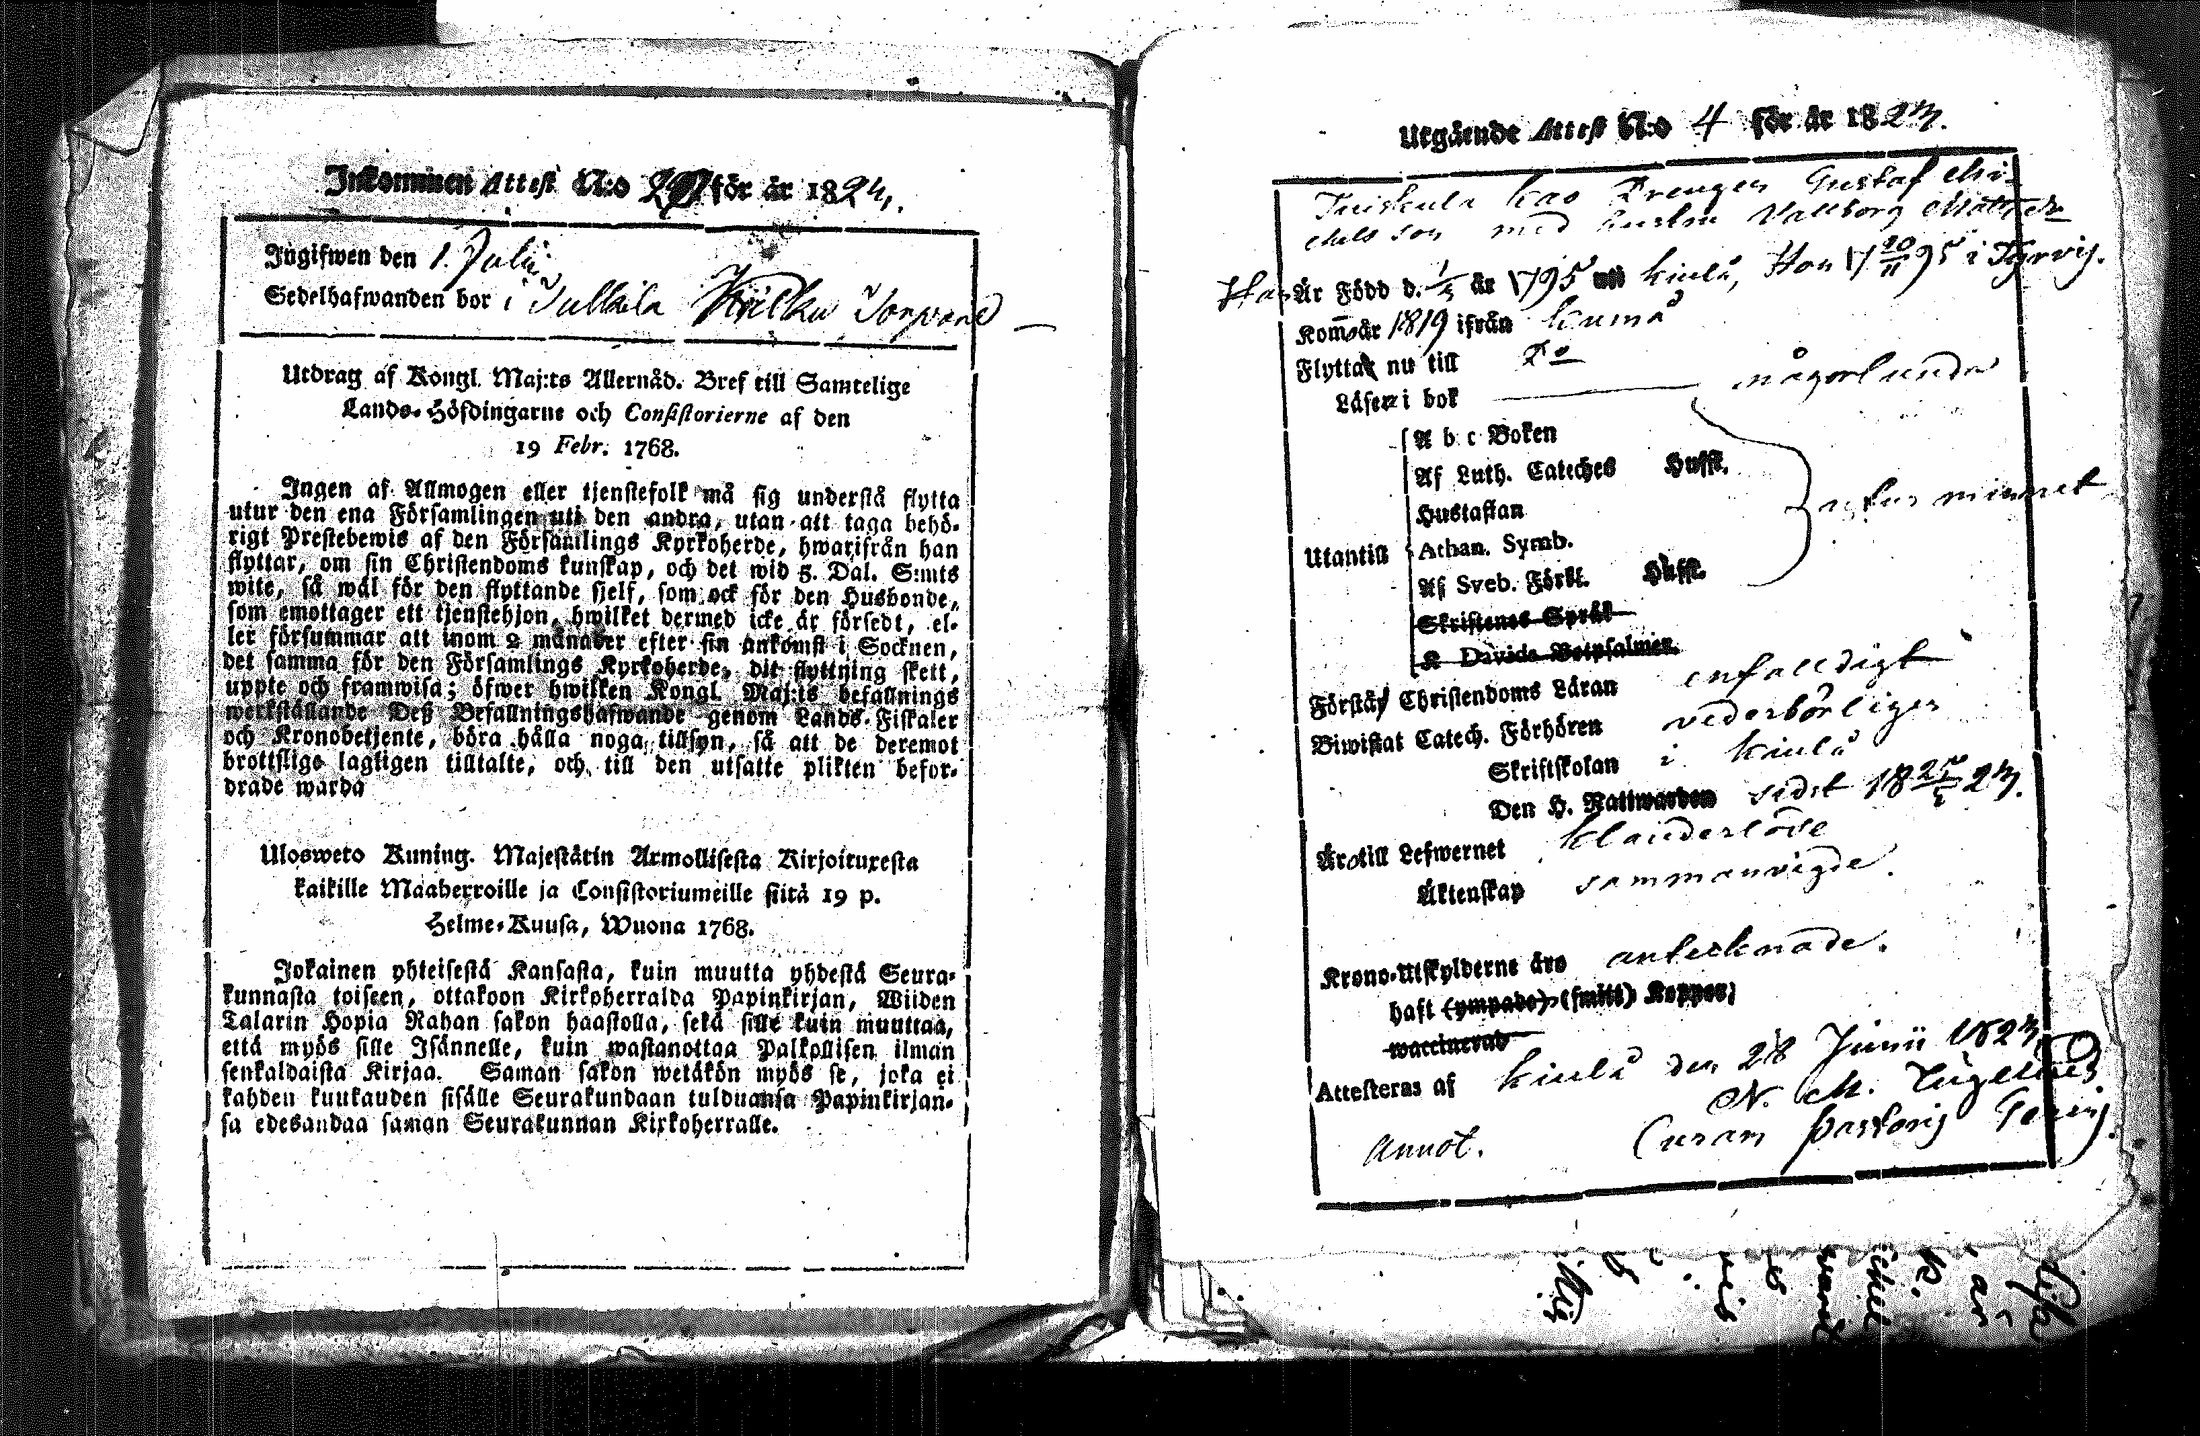 Inkommen Attest N:o 20 för år 1824.
Ingifwen den 1. Julii
Sedelhafwanden bor i Tulkila Torpare
Utdrag af Kongl. Maj:ts Allernåd. Bref till Samtelige
Lands-Höfdingarne och Consistorierne af den
19 Febr. 1768.
Ingen af Allmogen eller tjenstefolk må sig understå flytta
utur den ena Församlingen uti den andra, utan att taga behö-
rigt Prestebewis af den Församlings Kyrkoherde, hwarifrån han
flyttar, om sin Christendoms kunskap, och det wid 5. Dal. S:mts
wite, så wäl för den flyttande sjelf, som ock för den Husbonde,
som emottager ett tjenstehjon, hwilket dermed icke är försedt, el-
ler försummar att inom 2 månader efter sin ankomst i Socknen,
det samma för den Församlings Kyrkoherde, dit flyttning skett,
uppte och framwisa; öfwer hwilken Kongl. Maj:ts befallnings
werkställande Deß Befallningshafwande genom Lands-Fiskaler
och Kronobetjente, böra hålla noga tillsyn, så att de deremot
brottslige lagligen tilltalte, och till den utsatte plikten befor-
drade warda
Ulosweto Kuning. Majestätin Armollisesta Kirjoituxesta
kaikille Maaherroille ja Consistoriumeille siitä 19 p.
Helme-Kuusa, Wuona 1768.
Jokainen yhteisestä Kansasta, kuin muutta yhdestä Seura-
kunnasta toiseen, ottakoon Kirkoherralda Papinkirjan, Wiiden
Talarin Hopia Rahan sakon haastolla, sekä sille kuin muuttaa,
että myös sille Isännelle, kuin wastanottaa Palkollisen ilman
senkaldaista Kirjaa. Saman sakon wetäkön myös se, joka ei
kahden kuukauden sisälle Seurakundaan tulduansa Papinkirjan-
sa edesandaa saman Seurakunnan Kirkoherralle.
Utgående Attest N:o 4 för år 1823.
Drengen Gustaf Mi-
chels son med hustru Vallborg Matts dr
Han Är Född d. 1/3 år 1795 uti Kiulå, Hon 17 20/11 95 i Tyrvis.
Kom år 1819 ifrån Kumå
Flytta nu till Do
Läsa i bok någorlunda
A b c Boken
Af Luth. Cateches Hufft.
Hustaflan
Utantill Athan. Symb.
Af Sveb. Förkl. Hufft.
Skriftenes Språk
K Davids Botpsalmer.
minnet
Förstå Christendoms Läran enfalldigt
Biwistat Catech. Förhören vederbörligen
Skriftskolan i Kiulå
Den H. Nattwarden sidst 18 25/5 23.
Äro till Lefwernet klanderlöse
Äktenskap sammanvigde.
Krono-Utskylderne äro antecknade.
haft (ympade) (smitt) Koppor;
waccinerad
Attesteras af Kiulå den 28 Junii 1823
N. M.
Curam pastoris Gerens.
Annot.